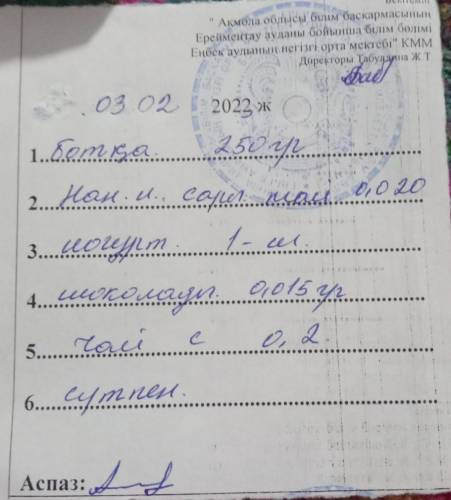 Бекітемін
" Ақмола облысы білім басқармасының
Ерейментау ауданы бойынша білім бөлімі
Еңбек ауылының негізгі орта мектебі" КММ
Директоры Табулдина Ж Т
03 02 2023 ж
1. ботқа. 250 гр
2. Нан. и. сары май 0,020
3. йогурт. 1-ш.
4. шоколады. 0,015 гр
5. чай с 0,2
6. сүтпен.
Аспаз: